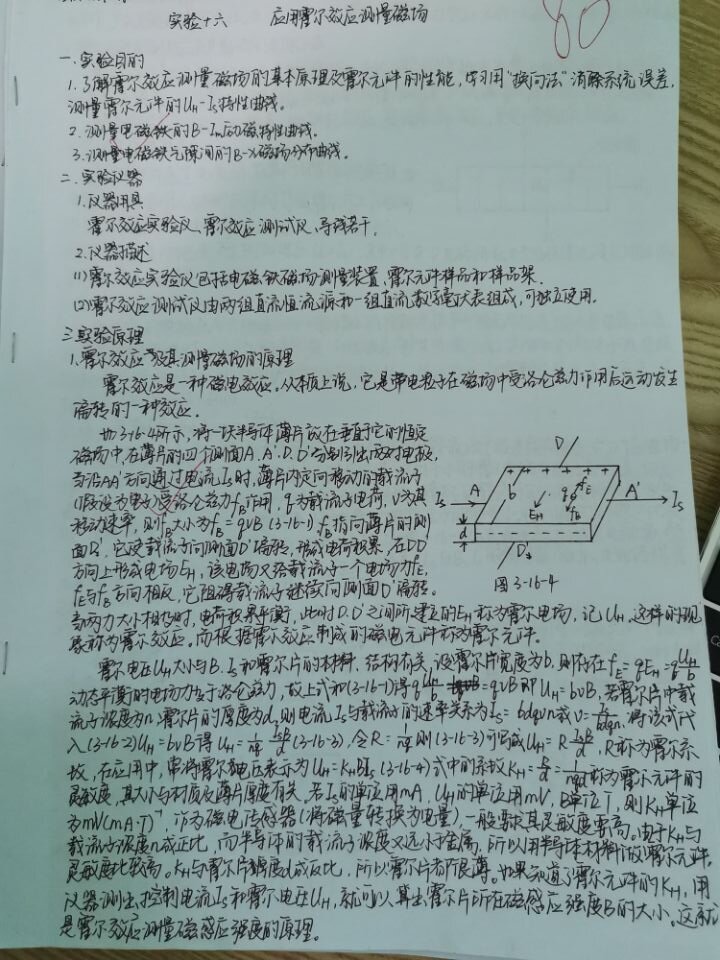 实验十六 应用霍尔效应测量磁场
80
一.实验目的
1.了解霍尔效应测量磁场的基本原理及霍尔元件的性能,学习用"换向法"消除系统误差,
测量霍尔元件的UH-Is特性曲线。
2.测量电磁铁的B-Im励磁特性曲线。
3.测量电磁铁气隙间的B-X磁场分布曲线。
二.实验仪器
1.仪器用具
霍尔效应实验仪、霍尔效应测试仪、导线若干。
2.仪器描述
(1)霍尔效应实验仪包括电磁铁磁场测量装置、霍尔元件样品和样品架。
(2)霍尔效应测试仪由两组直流恒流源和一组直流数字毫伏表组成,可独立使用。
三.实验原理
1.霍尔效应及其测量磁场的原理
霍尔效应是一种磁电效应。从本质上说,它是带电粒子在磁场中受洛仑兹力作用后运动发生
偏转的一种效应。
如3-16-4所示,将一块半导体薄片放在垂直于它的恒定
磁场中,在薄片的四个侧面A.A'.D.D'分别引出两对电极,
当沿AA'方向通过电流Is时,薄片内定向移动的载流子
(假设为电子)受洛仑兹力fB作用,q为载流子电荷,v为其
移动速率,则fB大小为fB=qvB (3-16-1) fB指向薄片的侧
面D',它使载流子向侧面D'偏转,形成电荷积累,在DD'
方向上形成电场EH,该电场又给载流子一个电场力fE,
fE与fB方向相反,它阻碍载流子继续向侧面D'偏转。
当两力大小相等时,电荷积累平衡,此时D.D'之间所建立的EH称为霍尔电场,记UH,这样的现
象称为霍尔效应。而根据霍尔效应制成的磁电元件称为霍尔元件。
D
A
b
fE
q
EH
fB
A'
Is
Is
d
D'
图3-16-4
霍尔电压UH大小与B.Is和霍尔片的材料、结构有关,设霍尔片宽度为b,则存在fE=qEH=qUH/b
动态平衡时电场力等于洛仑兹力,故上式和(3-16-1)得qUH/b=qvB即UH=bvB,若霍尔片中载
流子浓度为n,霍尔片的厚度为d,则电流Is与载流子的速率关系为Is=bdqvn或v=Is/bdqn,将该式代
入(3-16-2)UH=bvB得UH=1/nq IsB/d(3-16-3),令R=1/nq则(3-16-3)可写成UH=R IsB/d,R称为霍尔系
数,在应用中,常将霍尔电压表示为UH=KHBIs(3-16-4)式中的系数KH=R/d=1/nqd称为霍尔元件的
灵敏度,其大小与材质及薄片厚度有关。若Is的单位用mA,UH的单位用mV,B单位T,则KH单位
为mV(mA·T)⁻¹,作为磁电传感器(将磁量转换为电量),一般要求其灵敏度要高。由于KH与
载流子浓度n成反比,而半导体的载流子浓度又远小于金属,所以用半导体材料做霍尔元件,
灵敏度比较高。KH与霍尔片厚度d成反比,所以霍尔片都很薄。如果知道了霍尔元件的KH,用
仪器测出控制电流Is和霍尔电压UH,就可以算出霍尔片所在磁感应强度B的大小。这就
是霍尔效应测量磁感应强度的原理。